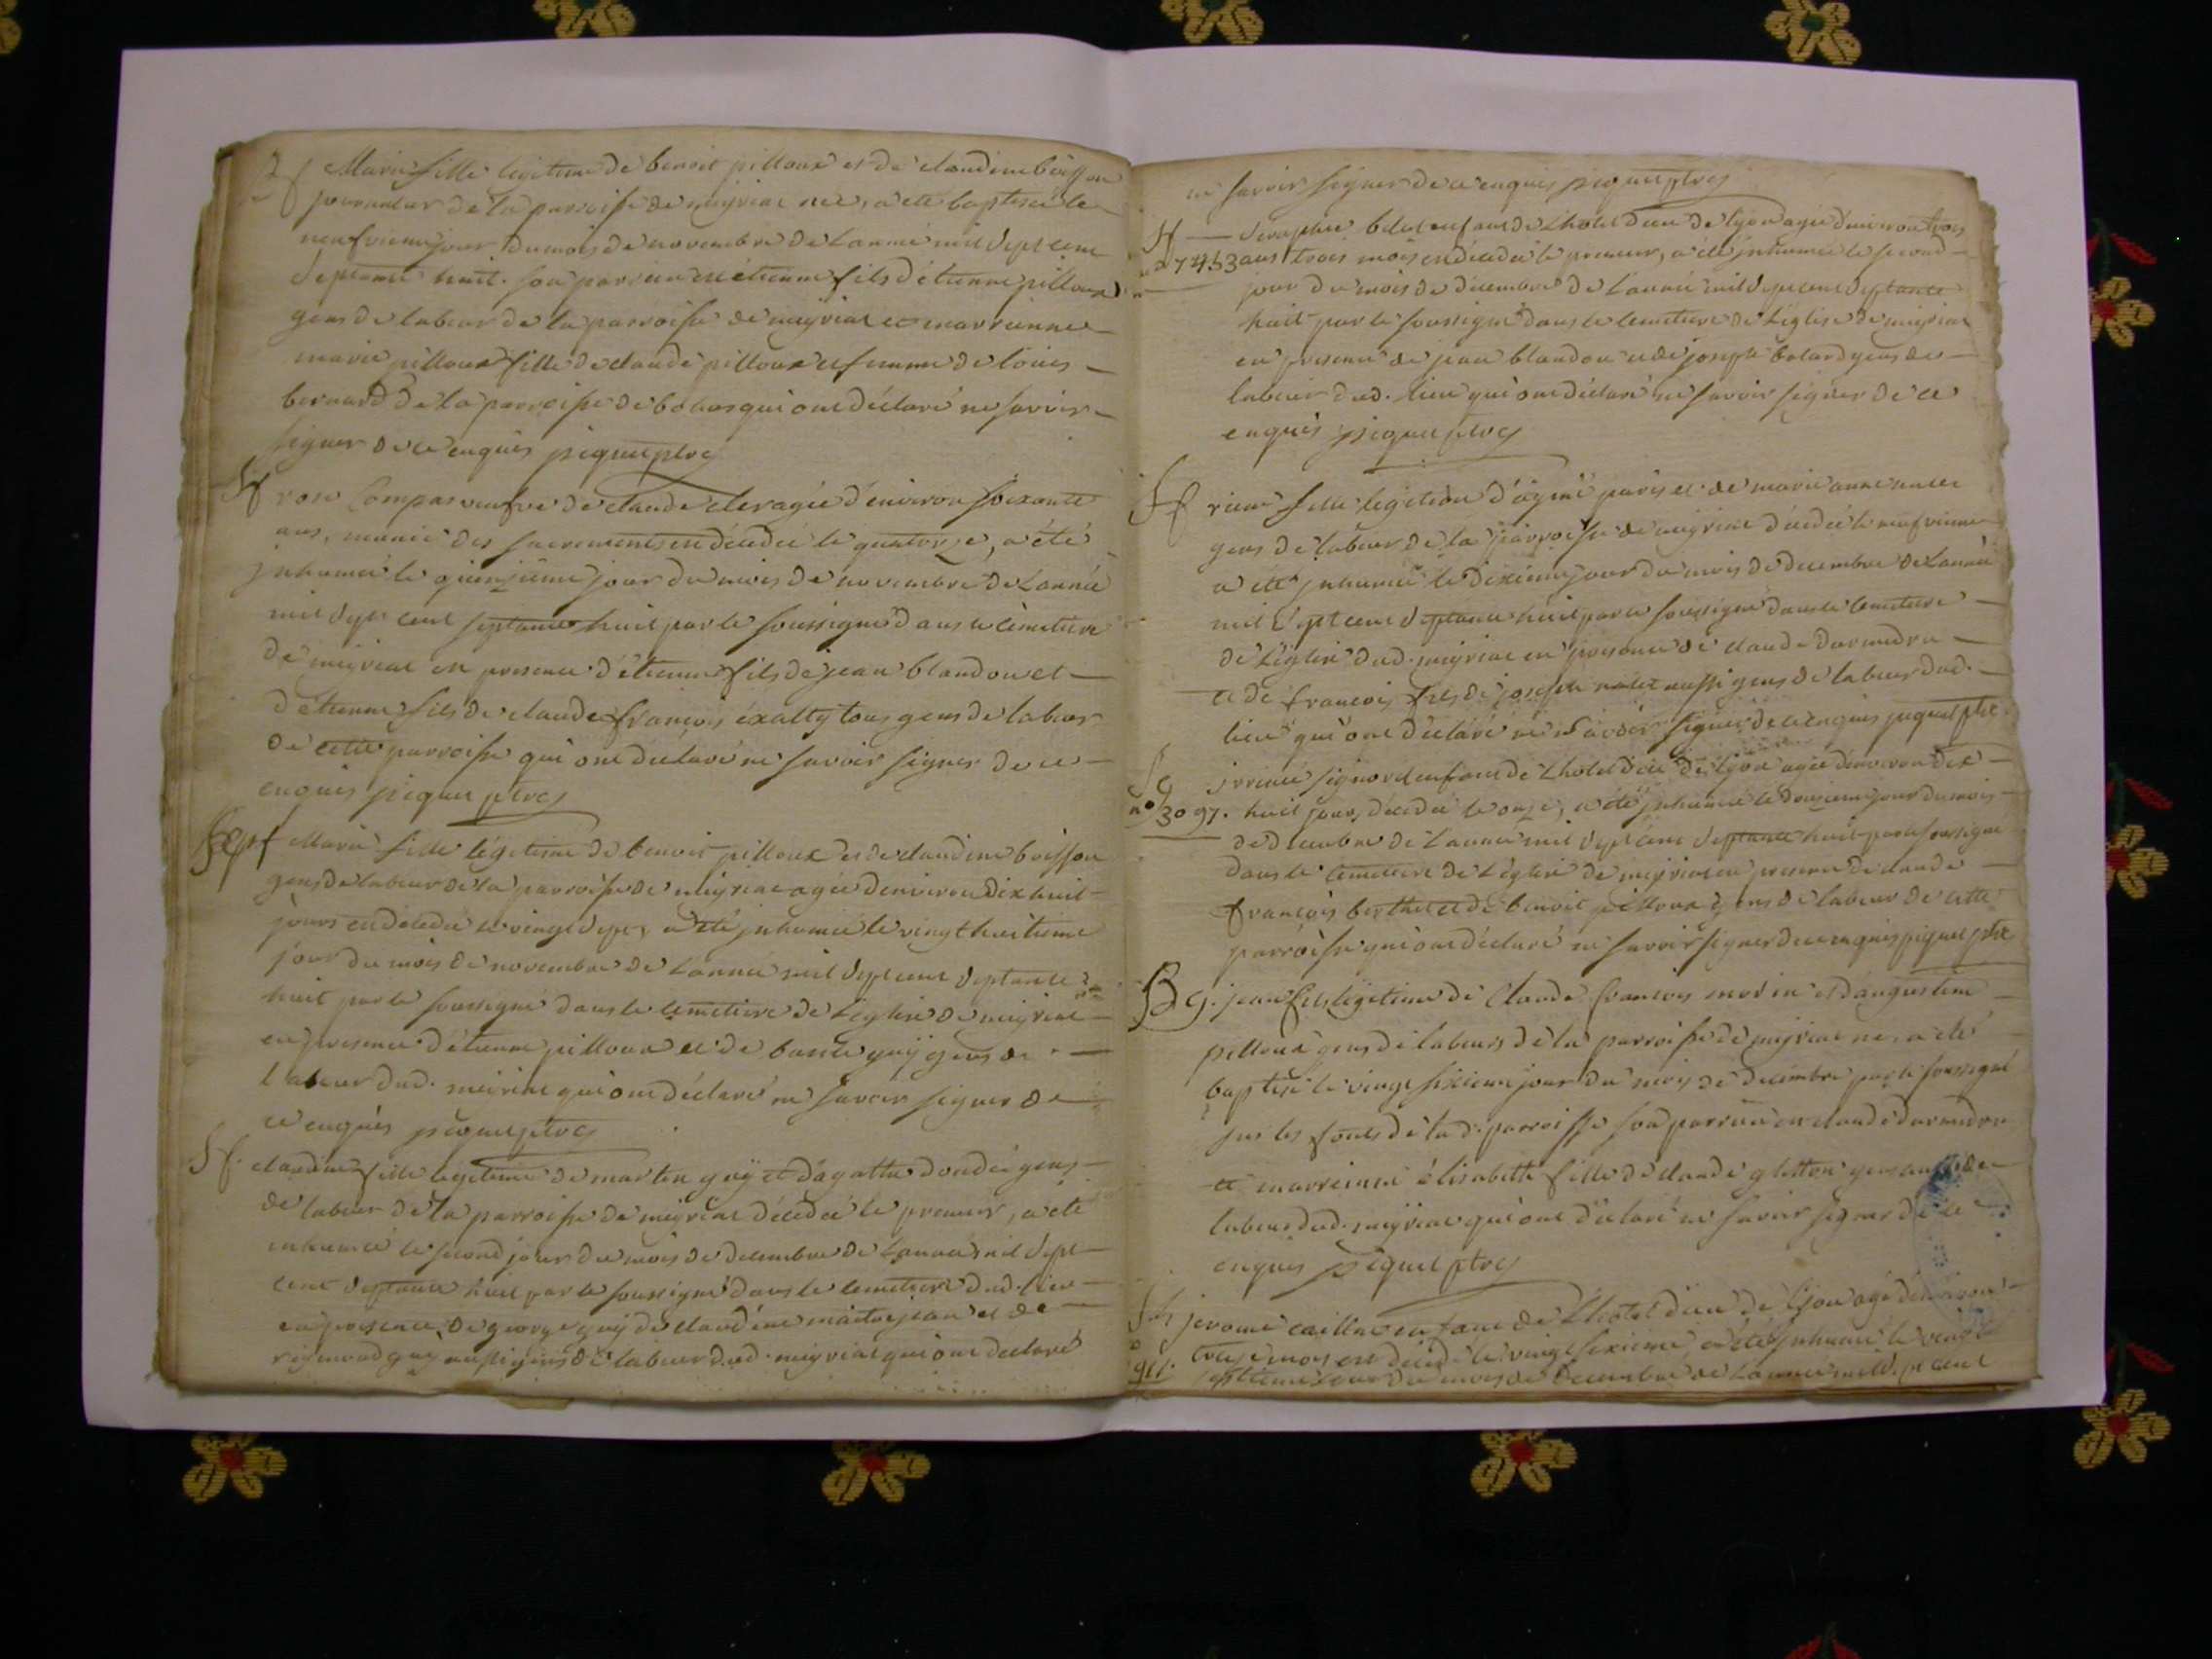 Marie fille legitime de benoit pilloux et de claudine boisson
journalier de la parroisse de meyriat née, a été baptisée le
neufvieme jour du mois de novembre de L'année mil sept cent
septante huit. son parrain est étienne fils d'étienne pilloux
gens de labeur de la parroisse de meyriat et marrienne
marie pilloux fille de claude pilloux et femme de louis
bernard de la parroisse de bohas qui ont déclaré ne savoir
signer de ce enquis piquet ptre
Sf rose Compas veufve de claude agée d'environ soixante
ans, munie des sacrements est décédée le quatorze, a été
jnhumée le quinzieme jour du mois de novembre de L'année
mil sept cent septante huit par le soussigné dans le cimetiere
de meyriat en presence d'étienne fils de jean blandon et
d'étienne fils de claude françois tous gens de labeur
de cette parroisse qui ont declaré ne savoir signer de ce
enquis piquet ptre
Marie fille légitime de benoit pilloux et de claudine boisson
gens de labeur de la parroisse de meyriat agée d'environ dix huit
jours est décédée le vingt sept, a été jnhumée le vingt huitieme
jour du mois de novembre de L'année mil sept cent septante
huit par le soussigné dans le cemetiere de L'église de meyriat
en presence d'étienne pilloux et de guÿ gens de
labeur dud. meyriat qui ont déclaré ne savoir signer de
ce enquis piquet ptre
Sf. claudine fille legitime de martin guÿ et d'agathe gens
de labeur de la parroisse de meyriat décédée le premier, a été
inhumée le second jour du mois de decembre de L'année mil sept
cent septante huit par le soussigné dans le cemetiere dud. lieu
en presence de george guÿ de claudine maitrejean et de
guÿ aussi gens de labeur dud. meyriat qui ont declaré
ne savoir signer de ce enquis piquet ptre
Sf enfant de L'hotel dieu de lyon agée d'environ trois
n° 7453 ans trois mois est décédée le premier, a été jnhumée le second
jour du mois de décembre de L'année mil sept cent septante
huit par le soussigné dans le cemetiere de L'église de meyriat
en presence de jean blandon et de joseph gens de
labeur dud. lieu qui ont déclaré ne savoir signer de ce
enquis piquet ptre
Sf fille legitime d' paris et de marie anne
gens de labeur de la parroisse de meyriat décédée le neufvieme
a été jnhumée le dixieme jour du mois de decembre de L'année
mil sept cent septante huit par le soussigné dans le cemetiere
de L'église dud. meyriat en presence de claude
et de francois fils de joseph aussi gens de labeur dud.
lieu qui ont déclaré ne savoir signer de ce enquis piquet ptre
enfant de L'hotel dieu de lyon agée d'environ dix
n° 3097. huit jours, décédée le onze, a été jnhumée le douzieme jour du mois
de decembre de L'année mil sept cent septante huit par le soussigné
dans le cemetiere de L'église de meyriat en presence de claude
françois berthet et de benoit pilloux gens de labeur de cette
parroisse qui ont déclaré ne savoir signer de ce enquis piquet ptre
Bg. jean fils légitime de Claude francois morin et d'augustine
pilloux gens de labeurs de la parroisse de meyriat né, a été
baptisé le vingt sixieme jour du mois de decembre par le soussigné
sur les fonts de lad. parroisse son parrain est claude
et marreinne élisabeth fille de claude gens de
labeur dud. meyriat qui ont déclaré ne savoir signer de ce
enquis piquet ptre
jerome enfant de L'hotel dieu de lyon agé d'environ
mois est décédé le vingt sixieme, a été jnhumé le vingt
septieme jour du mois de decembre de L'année mil sept cent